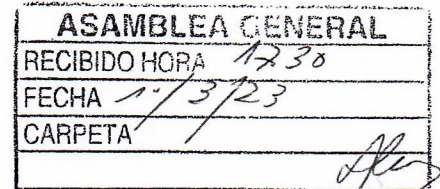 ASAMBLEA GENERAL
RECIBIDO HORA 17.30
FECHA 1º/3/23
CARPETA